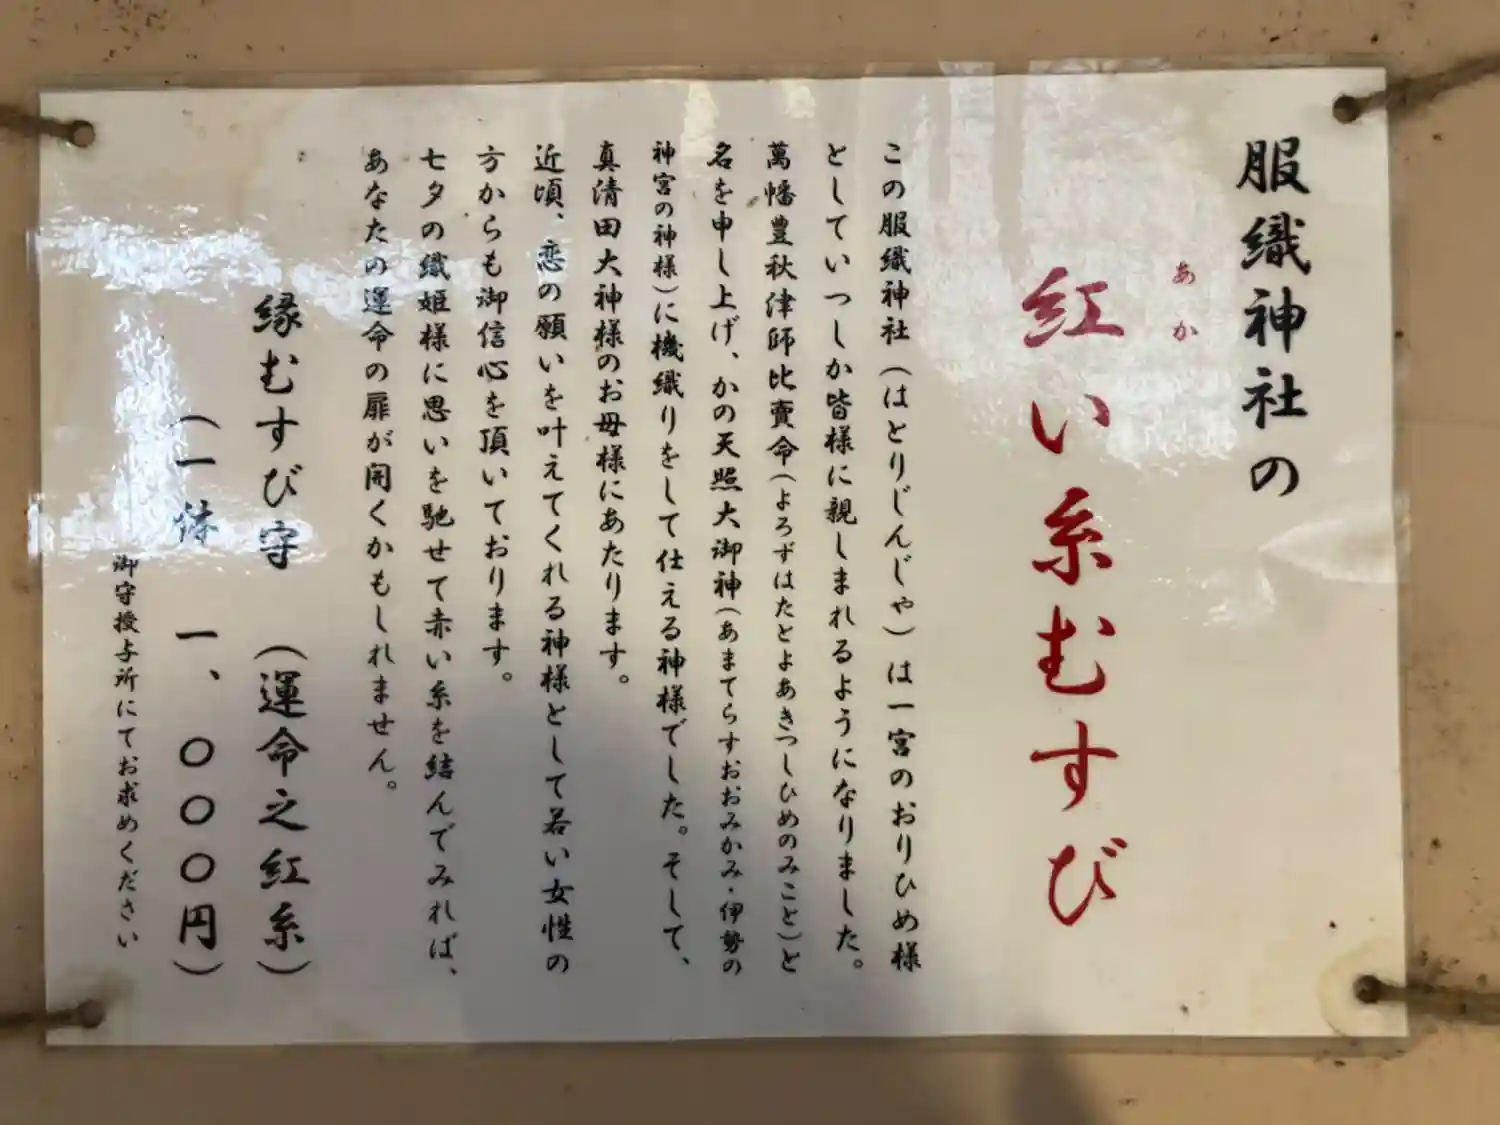 服織神社の
あか
紅い糸むすび
この服織神社（はとりじんじゃ）は一宮のおりひめ様
としていつしか皆様に親しまれるようになりました。
萬幡豊秋津師比賣命（よろずはたとよあきつしひめのみこと）と
名を申し上げ、かの天照大御神（あまてらすおおみかみ・伊勢の
神宮の神様）に機織りをして仕える神様でした。そして、
真清田大神様のお母様にあたります。
近頃、恋の願いを叶えてくれる神様として若い女性の
方からも御信心を頂いております。
七夕の織姫様に思いを馳せて赤い糸を結んでみれば、
あなたの運命の扉が開くかもしれません。
縁むすび守　（運命之紅糸）
（一体　一、〇〇〇円）
御守授与所にてお求めください